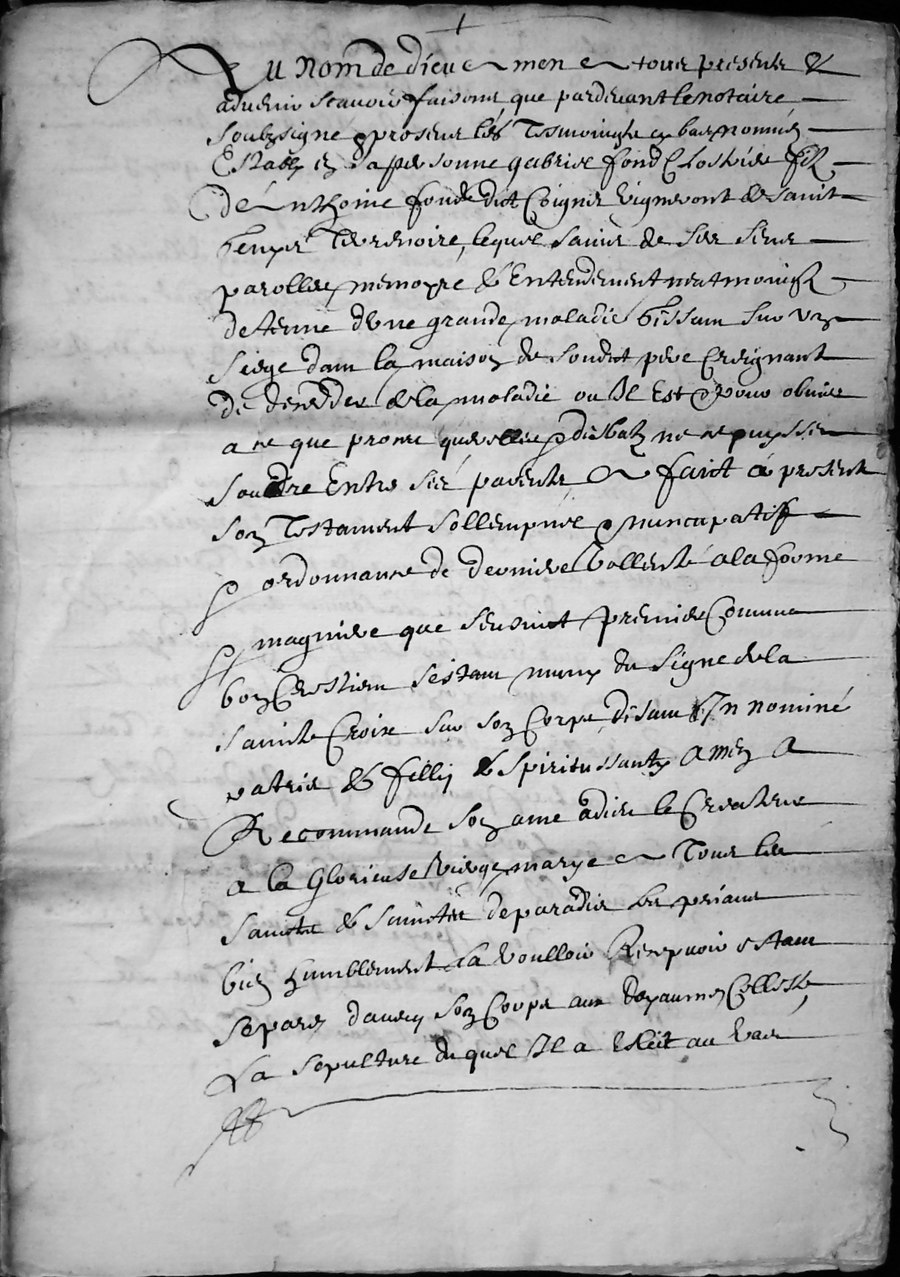 Au Nom de dieu Amen A tous presens &
advenir scavoir faisons que pardevant le notaire
soubzsigne & presens les Tesmoingtz cy bas nommés
Estably en sa personne gabriel fond filz
d'Anthoine fond dict Coignet vigneront de sainct
Genys Terrenoire, lequel sain de ses sens
parolles memoyre & Entendement neatmoingtz
detenu d'une grande maladie Gissant sur un
siege dans la maison de soudict pere Creignant
de deceder de la maladie ou Il Est & pour obvier
a ce que proces querelles & desbatz ne se puyssent
soudre Entre ses parents A faict & present
son Testament sollempnel & nuncupatif
& ordonnance de derniere Vollenté a la forme
& magniere que sensuict Premier Comme
bon Crestien sestant muny du signe de la
saincte Croix sur son Corps disant In nominé
patris & fillij & spiritussanty Amen A
Recommande son ame a dieu le Createur
a la Glorieuse Vierge marye A Tous les
saincts & sainctes de paradis les priant
bien humblement la voulloir Recepvoir estant
separé d'avec son Corps aux Royaume Celleste
La sepulture duquel Il a Esleu au